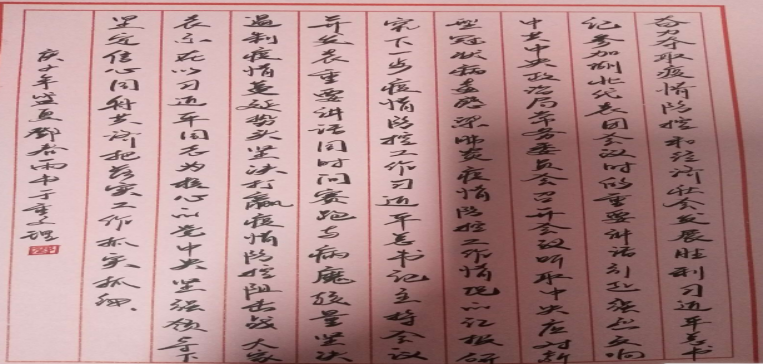 奋力夺取疫情防控和经济社会发展胜利习近平总书
记参加湖北代表团会议时的重要讲话引起强烈反响
中共中央政治局常务委员会召开会议听取中央应对新
型冠状病毒感染肺炎疫情防控工作情况的汇报研
究下一步疫情防控工作习近平总书记主持会议
并发表重要讲话同时间赛跑与病魔较量坚决
遏制疫情蔓延势头坚决打赢疫情防控阻击战大家
表示在以习近平同志为核心的党中央坚强领导下
坚定信心同舟共济把各项工作抓实抓细
庚子年盛夏邓春雨书于